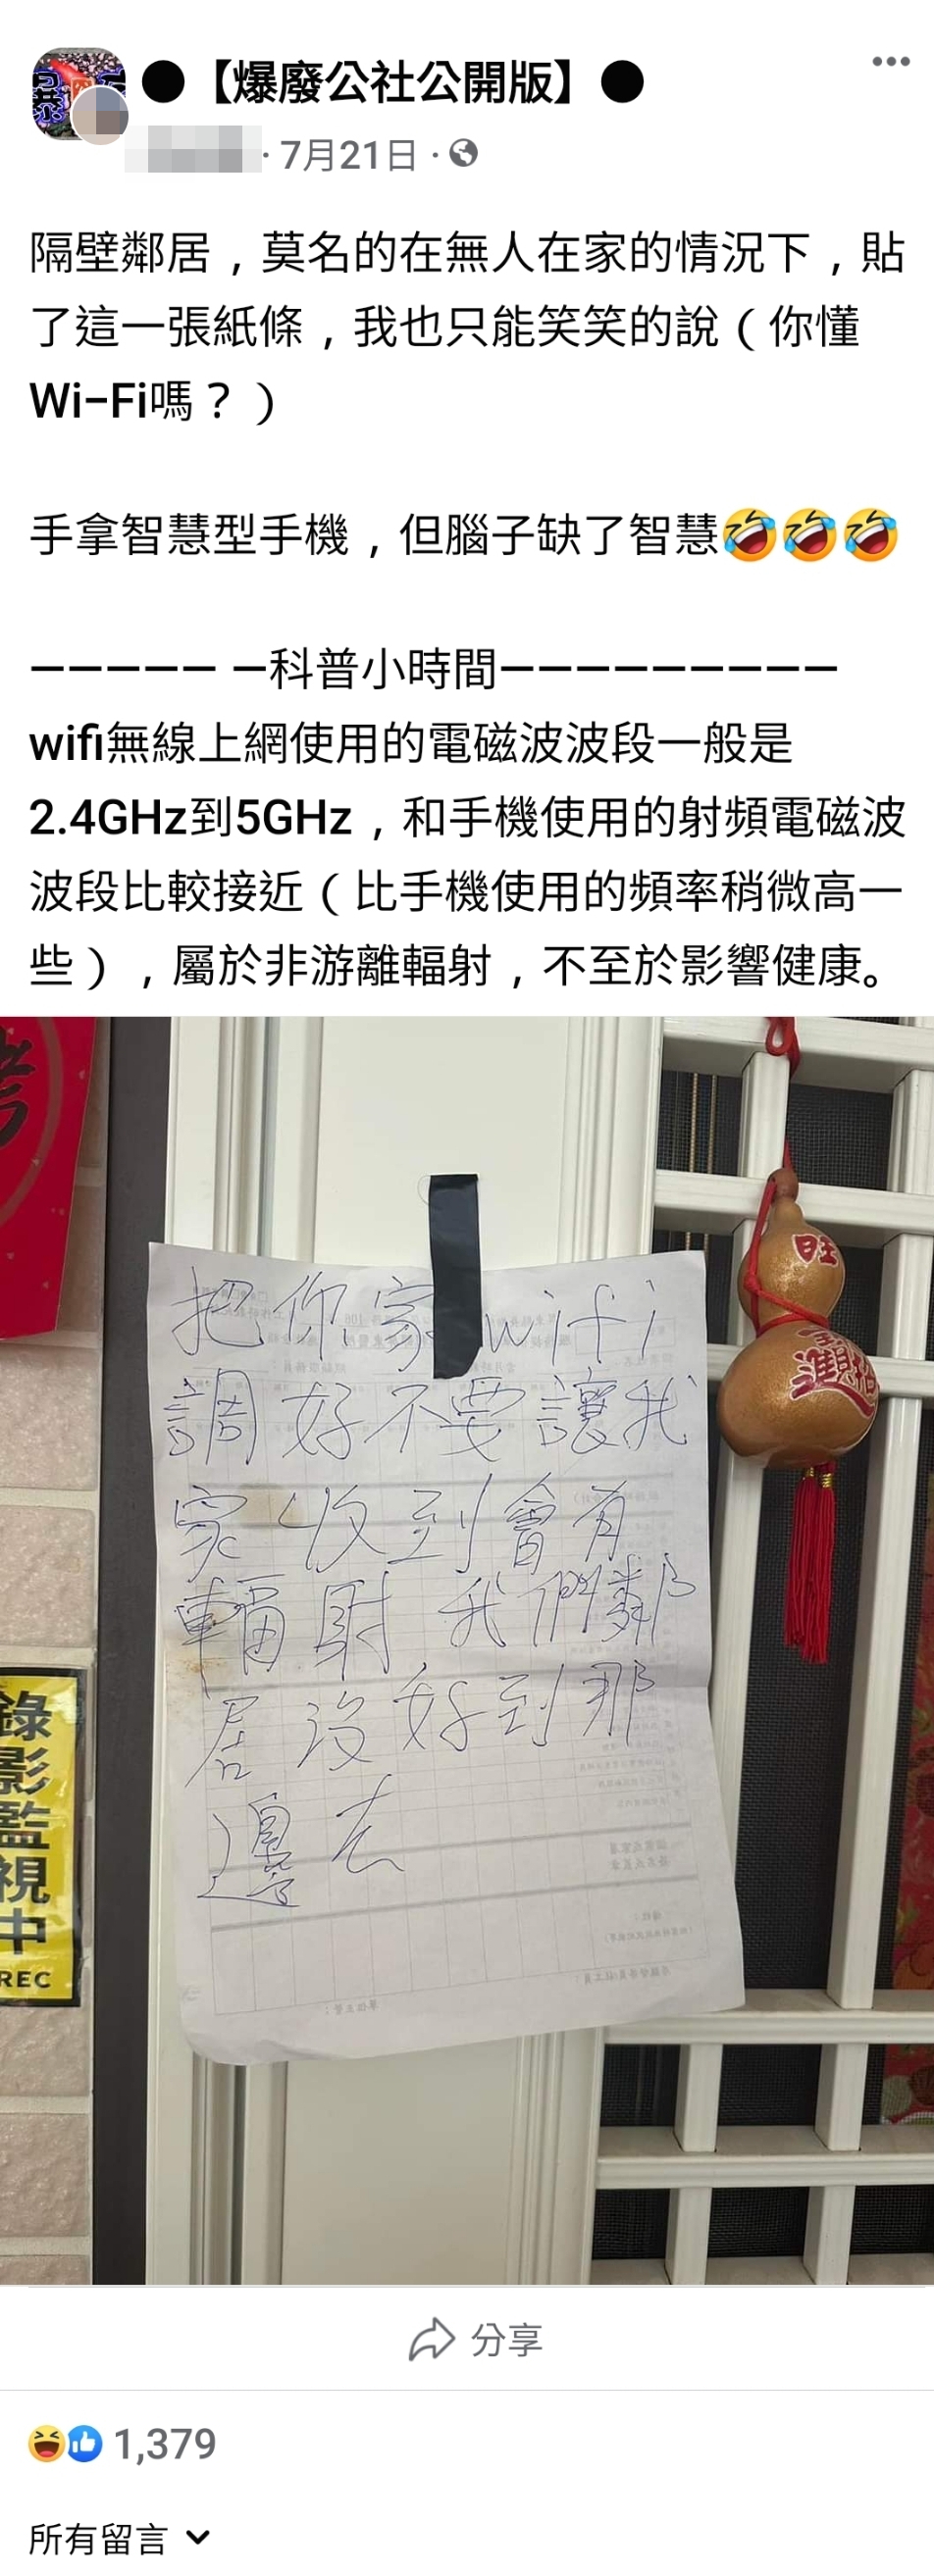 ●【爆廢公社公開版】●
· 7月21日 ·
隔壁鄰居，莫名的在無人在家的情況下，貼
了這一張紙條，我也只能笑笑的說（你懂
Wi-Fi嗎？）
手拿智慧型手機，但腦子缺了智慧🤣🤣🤣
————— —科普小時間—————————
wifi無線上網使用的電磁波波段一般是
2.4GHz到5GHz，和手機使用的射頻電磁波
波段比較接近（比手機使用的頻率稍微高一
些），屬於非游離輻射，不至於影響健康。
把你家wifi
調好不要讓我
家收到會有
輻射我們鄰
居沒好到那
邊去
旺
錄影監視中
REC
分享
1,379
所有留言